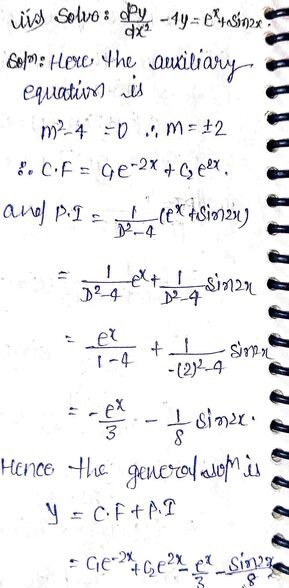 iii) Solve: d²y/dx² - 4y = eˣ + sin2x
Solⁿ: Here the auxiliary
equation is
m² - 4 = 0 ∴ m = ±2
∴ C.F = C₁e⁻²ˣ + C₂e²ˣ.
and P.I = 1/(D²-4) (eˣ + sin2x)
= 1/(D²-4) eˣ + 1/(D²-4) sin2x
= eˣ/(1-4) + 1/(-(2)²-4) sin2x
= -eˣ/3 - 1/8 sin2x.
Hence the general solⁿ is
y = C.F + P.I
= C₁e⁻²ˣ + C₂e²ˣ - eˣ/3 - sin2x/8